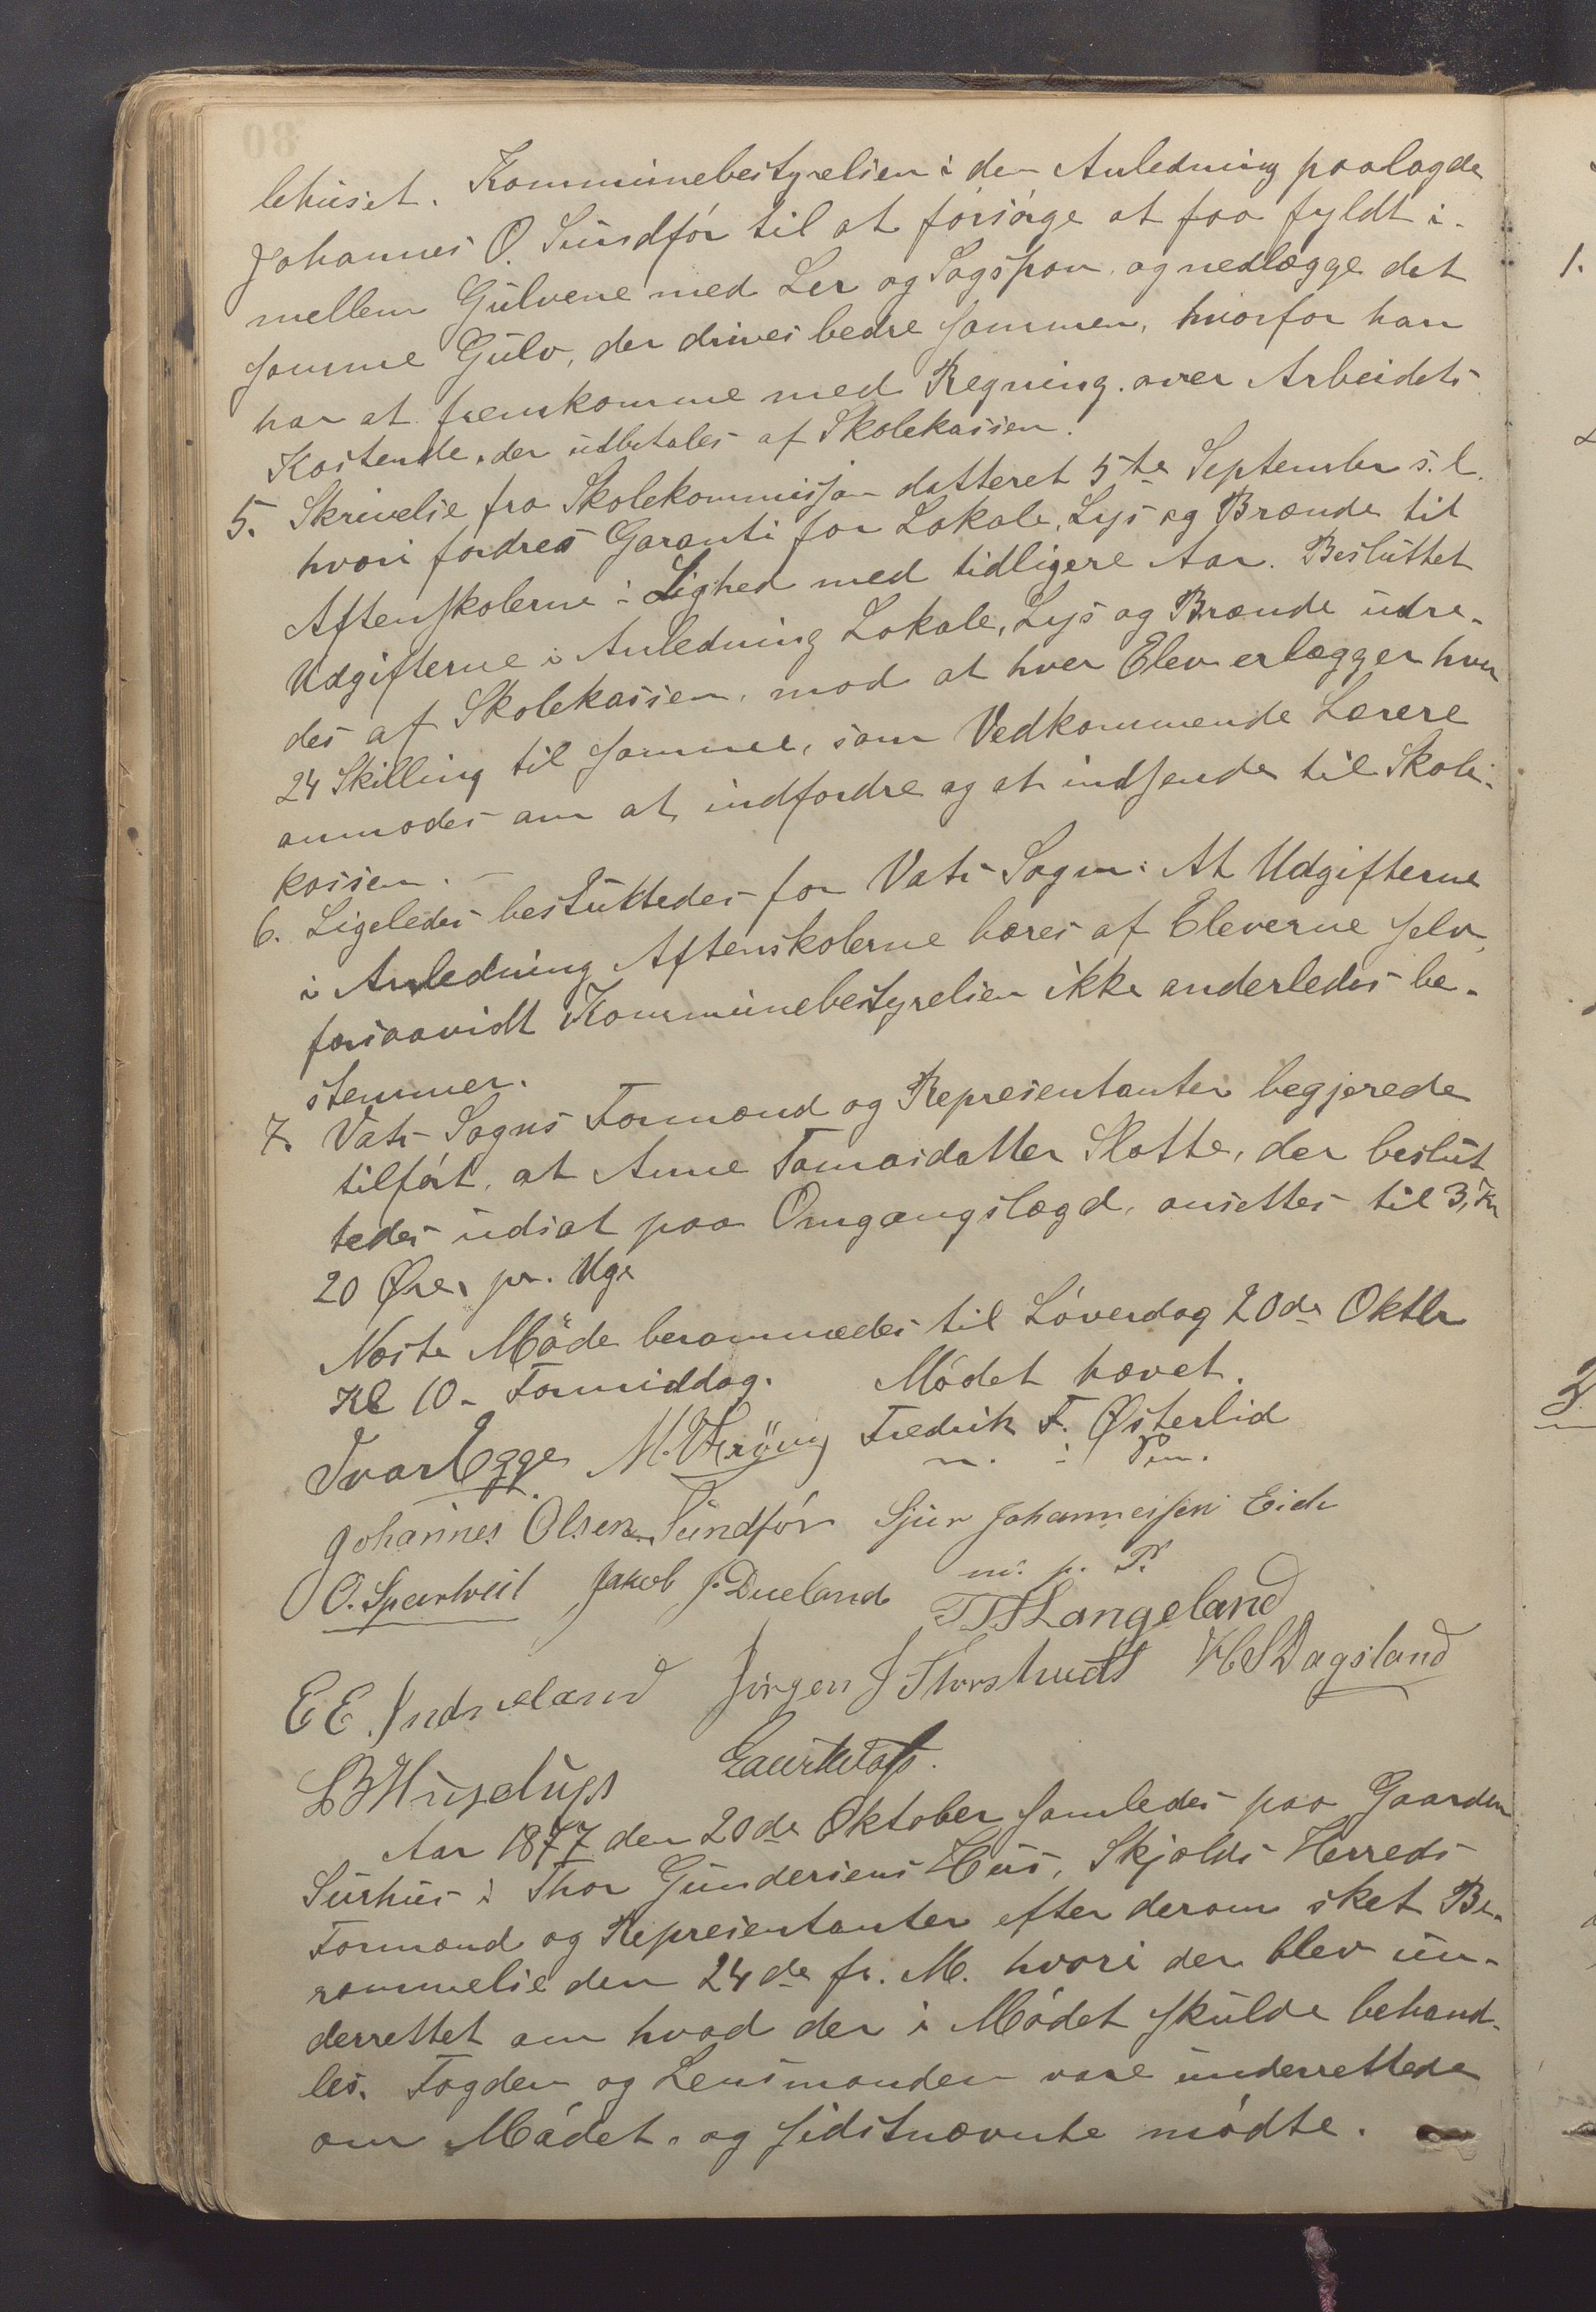 lehuset. Kommunebestyrelsen i den Anledning paalagde
Johannes O. Sundför til at forsörge at faa fyldt i-
mellem Gulvene med Ler og Sagspon, og nedlægge det
samme Gulv, der drives bedre sammen, hvorfor han
har at fremkomme med Regning over Arbeidets
Kostende, der udbetales af Skolekassen.
5. Skrivelse fra Skolekommissjon datteret 5te September s. l.
hvori fordres Garanti for Lokale, Lys og Brænde til
Aftenskolerne i Lighed med tidligere Aar. Besluttet
Udgifterne i Anledning Lokale, Lys og Brænde udre-
des af Skolekassen, mod at hver Elev erlægger hver
24 Skilling til samme, som Vedkommende Lærere
anmodes om at indfordre og at indsende til Skole-
kassen. –
6. Ligeledes besluttedes for Vats Sogn: At Udgifterne
i Anledning Aftenskolerne bæres af Eleverne selv,
forsaavidt Kommunebestyrelsen ikke anderledes be-
stemmer.
7. Vats Sogns Formænd og Representanter begjerede
tilfört, at Anne Tomasdatter Slotte, der beslut
tedes udsat paa Omgangslægd, ansettes til 3, Kr
20 Øre, pr. Uge
Næste Möde berammedes til Löverdag 20de Oktbr
Kl 10 – Formiddag. Mödet hævet.
Ivar Egge M. Fredrik F. Østerlid
m. i Pen.
Johannes Olsen Sundför Sjur Johannessen Eide
m. p. P.
O. Spartveit Jakob J. Dueland T T Langeland
E E. Indreland Jörgen J Storstveit H S Dagsland
L B
Aar 1877 den 20de Oktober samledes paa Gaarden
Surhus i Thor Gundersens Hus, Skjolds Herreds
Formænd og Representanter efter derom sket Be-
rammelse den 24de fr. M. hvori der blev un-
derrettet om hvad der i Mödet skulde behand-
les. Fogden og Lensmanden vare underrettede
om Mödet, og sidstnævnte mödte.